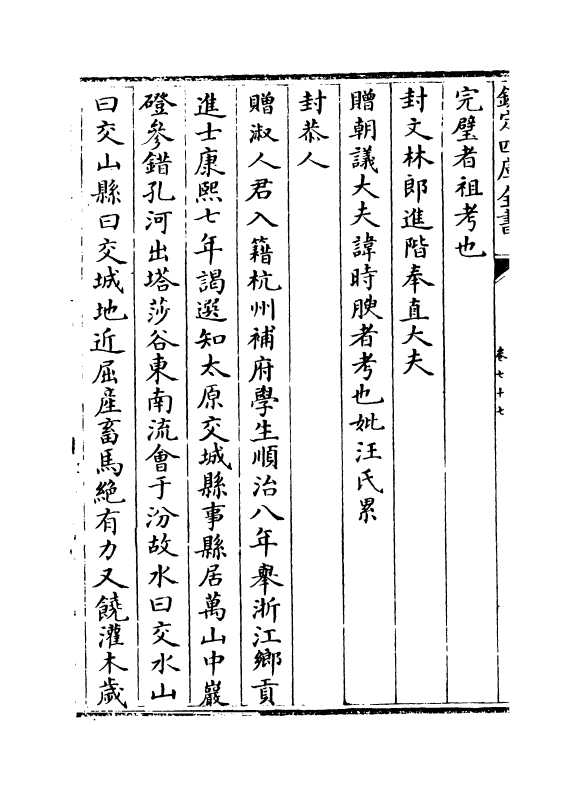 欽定四庫全書
卷七十七
完璧者祖考也
封文林郎進階奉直大夫
贈朝議大夫諱時腴者考也妣汪氏累
封恭人
贈淑人君入籍杭州補府學生順治八年舉浙江鄉貢
進士康熙七年謁選知太原交城縣事縣居萬山中巖
磴參錯孔河出塔莎谷東南流會于汾故水曰交水山
曰交山縣曰交城地近屈產畜馬絶有力又饒灌木歲